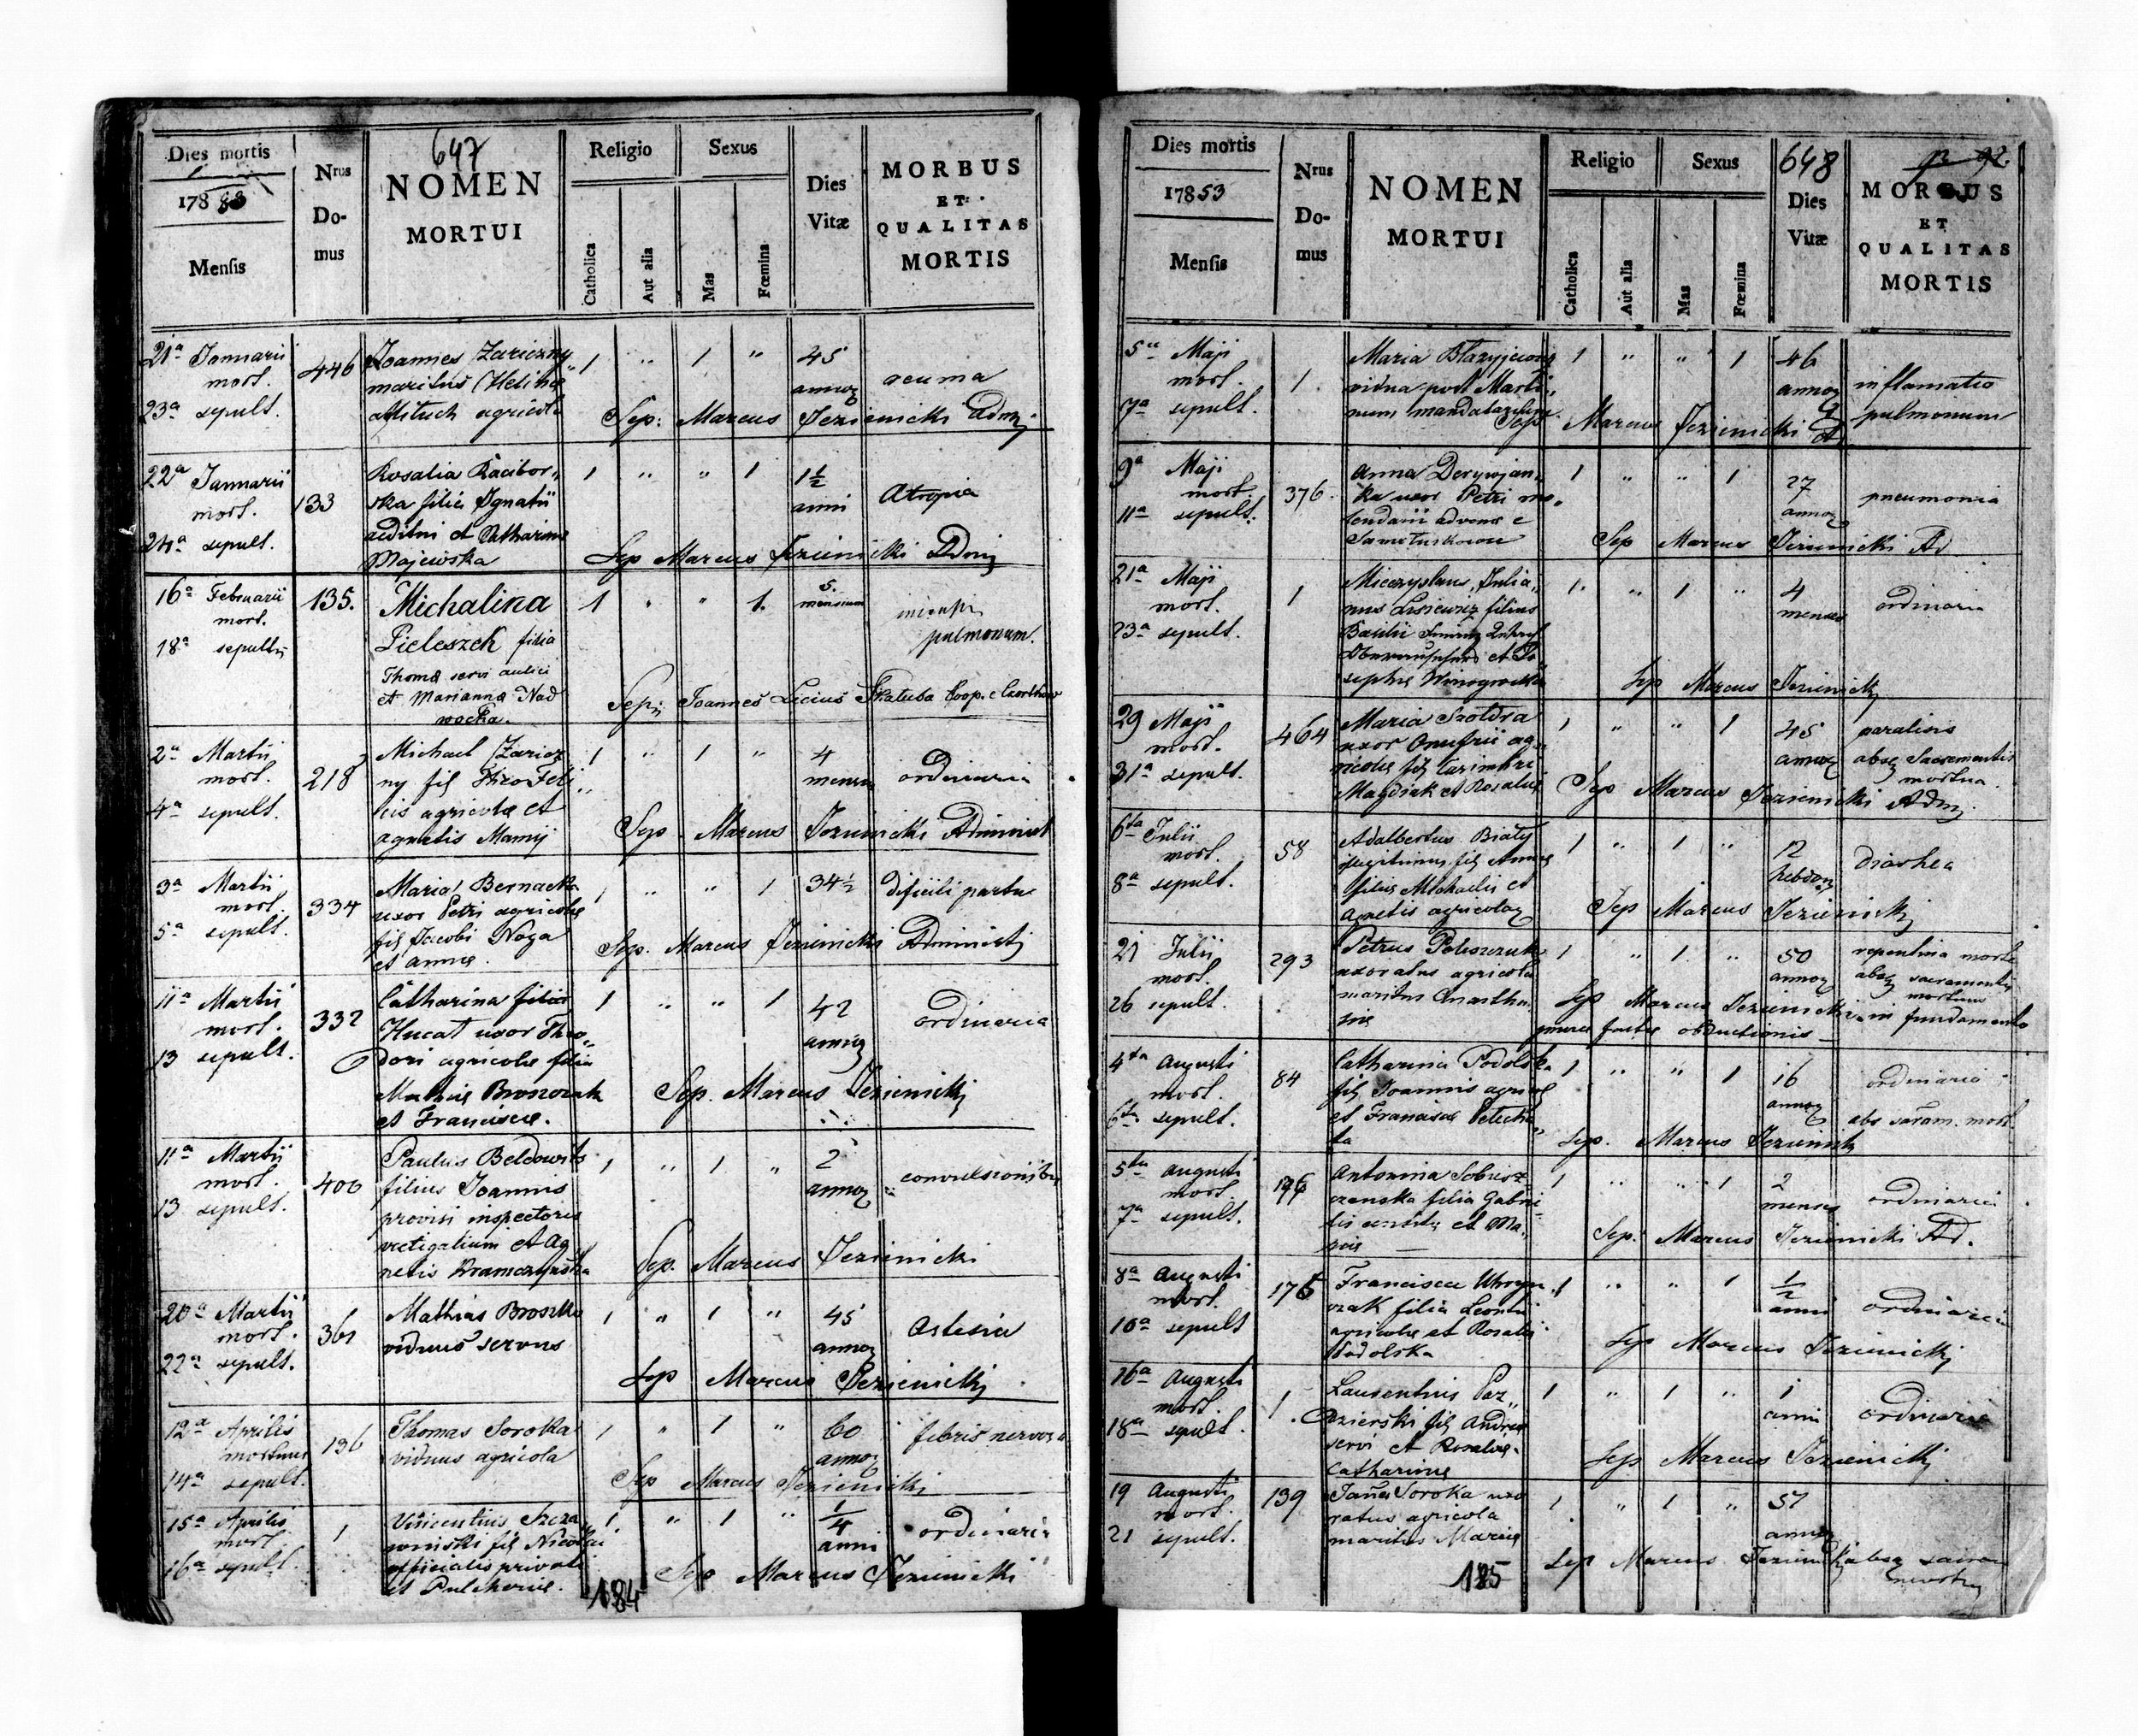 647
Dies mortis
178
Mensis
Nrus
Do-
mus
NOMEN
MORTUI
Religio
Catholica
Aut alia
Sexus
Mas
Fœmina
Dies
Vitæ
MORBUS
ET
QUALITAS
MORTIS
21a Januarii
mort.
23a sepult.
446
Joannes Zariczny
maritus
agricola
1 " 1 "
45
annoz
Sep: Marcus Jezienicki Admi
22a Januarii
mort.
24a sepult.
133
Rosalia Racibor„
ska filia Ignatii
et Catharina
Majewska
1 " " 1
1½
anni
Atropia
Sep Marcus Jezienicki Admi
16a Februarii
mort.
18a
135.
Michalina
Pieleszek filia
Thoma servi aulici
et Marianna Nad
1 " " 1.
5.
mensium
pulmonum.
Sep: Joannes Licius Skaluba Coop.
2a Martii
mort.
4a sepult.
218
Michael Zaricz
ny fil
cis agricola et
agnetis
1 " 1 "
4
ordinaria
Sep. Marcus Jezienicki Administ
3a Martii
mort.
5a sepult.
334
Maria Bernacka
uxor Petri agricola
fil Jacobi Noga
et anna.
1 " " 1
34½
dificili partu
Sep. Marcus Jezienicki Administ
11a Martii
mort.
13 sepult.
332
Catharina filia
Hucat uxor Theo„
dori agricola filia
et Francisca.
1 " " 1
42
annoz
ordinaria
Sep. Marcus Jezienicki
11a Martii
mort.
13 sepult.
400
Paulus Beldowits
filius Joannis
provisi inspectoris
vectigalium et Ag
netis
1 " 1 "
2
annoz
Sep. Marcus Jezienicki
20a Martii
mort.
22a sepult.
361
Mathias
viduus servus
1 " 1 "
45
annoz
Astesia
Sep Marcus Jezienicki
12a Aprilis
mortuus
14a sepult.
136
Thomas Soroka
viduus agricola
1 " 1 "
60
annoz
febris nervosa
Sep Marcus Jezienicki
15a Aprilis
mort.
16a sepult.
1
Vincentius Szcza
winski fil Nicolai
officialis privati
et Pulcheria.
1 " 1 "
¼
anni
ordinaria
Sep Marcus Jezienicki
184
Dies mortis
17853
Mensis
Nrus
Do-
mus
NOMEN
MORTUI
Religio
Catholica
Aut alia
Sexus
Mas
Fœmina
648
Dies
Vitæ
MORBUS
ET
QUALITAS
MORTIS
5a Maji
mort.
7a sepult.
1.
Maria
vidua post Marti„
num
1 " " 1
46
annoz
inflamatio
pulmonum
Sep Marcus Jezienicki
9a Maji
mort.
11a sepult.
376.
Anna Derywjan„
ka uxor Petri mo„
lendarii advena e
1 " " 1
27
annoz
pneumonia
Sep Marcus Jezienicki Ad
21a Maji
mort.
23a sepult.
1
Mieczyslaus Julia„
nus Lisiewicz filius
Basilii
et Jo
sepha
1 " 1 "
4
menses
ordinaria
Sep Marcus Jezienicki
29 Maji
mort.
31a sepult.
464
Maria Szoldra
uxor Onufrii ag„
ricola fil Casimiri
Magdiak et Rosalia
1 " " 1
45
annoz
paralisis
absq Sacramentis
mortua
Sep Marcus Jezienicki Adm
6ta Julii
mort.
8a sepult.
58
Adalbertus Bialy
illegitimus fil Anna
filia Michaelis et
Agnetis agricolaz
1 " 1 "
12
hebdoz
Diarhea
Sep Marcus Jezienicki
21 Julii
mort.
26 sepult.
293
Petrus Poloszczuk
uxoratus agricola
maritus
1 " 1. "
50
annoz
repentina morte
absq sacramentis
mortuus
Sep Marcus Jezienicki in fundamento
facta obductionis
4ta Augusti
mort.
6ta sepult.
84
Catharina Podolska
fil Joannis agricol
et Francisca
1 " " 1
16
annoz
ordinaria
abs sacram. mort
Sep. Marcus Jezienicki
5ta augusti
mort.
7a sepult.
Antonina Sobiesz
czanska filia Gabri
et Ma„
ria
1 " " 1
2
menses
ordinaria
Sep: Marcus Jezienicki Ad.
8a Augusti
mort.
10a sepult
176
Francisca
filia Leontii
agricola et Rosalia
Podolska
1 " " 1
½
anni
ordinaria
Sep Marcus Jezienicki
16a Augusti
mort.
18a sepult.
1.
Laurentius Paz„
dzierski fil Andrea
servi et Rosalia
Catharina
1 " 1 "
1
anni
ordinaria
Sep Marcus Jezienicki
19 Augusti
mort.
21 sepult.
139
Soroka uxo
ratus agricola
maritus Maria
1 " 1 "
57
annoz
Sep Marcus Jezienicki absq
185